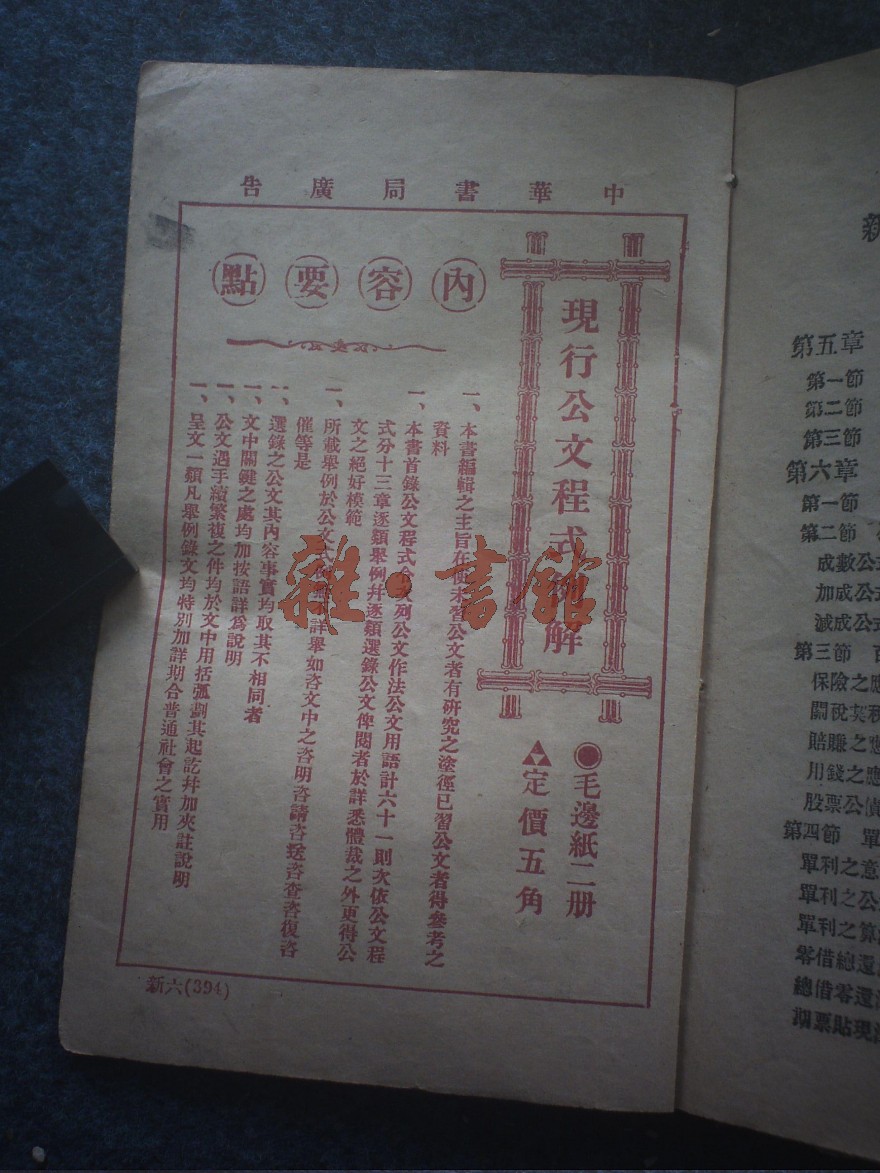 中華書局廣告
現行公文程式例解
◉毛邊紙二册
定價五角
內容要點
一、本書編輯之主旨在使未習公文者有硏究之塗徑已習公文者得參考之
資料
一、本書首錄公文程式次列公文作法公文用語計六十一則次依公文程
式分十三章逐類舉例幷逐類選錄公文俾閱者於詳悉體裁之外更得公
文之絕好模範
一、所載舉例於公文式詳舉如咨文中之咨明咨請咨送咨查咨復咨
催等是
一、選錄之公文其內容事實均取其不相同者
一、文中關鍵之處均加按語詳爲說明
一、公文遇手續繁複之件均於文中用括弧劃其起訖幷加夾註說明
一、呈文一類凡舉例錄文均特別加詳期合普通社會之實用
新六(394)
雜·書館
新
第五章
第一節
第二節
第三節
第六章
第一節
第二節
成數公式
加成公式
減成公式
第三節 百
保險之應
關稅契稅
賠賺之應
用錢之應
股票公債
第四節 單
單利之意
單利之公
單利之算
零借總還
總借零還
期票貼現